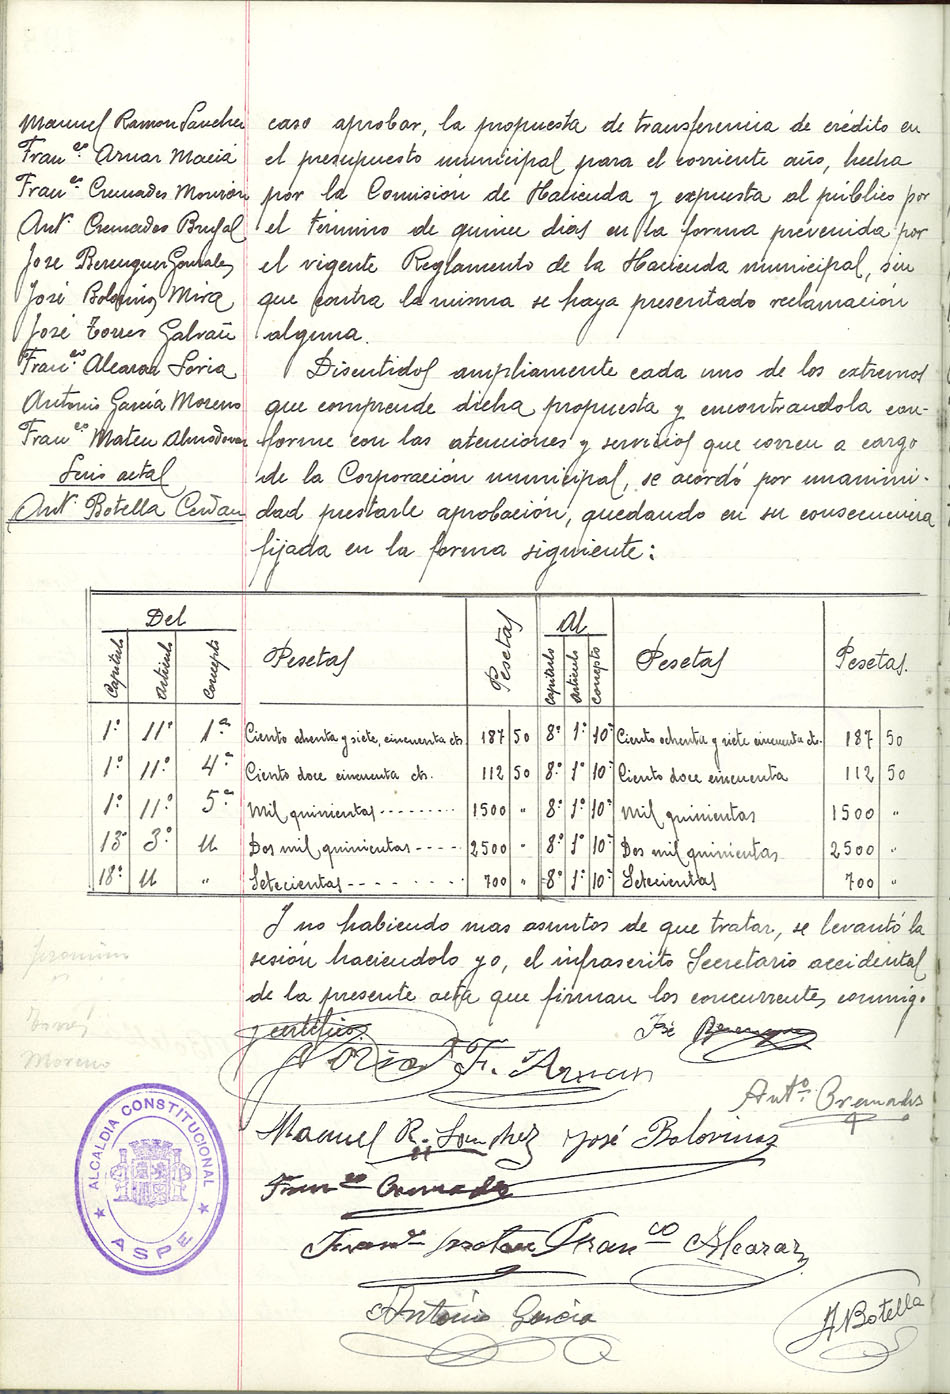 Manuel Ramon Sanchez
Fran.co Aznar Maciá
Fran.co Cremades Mourion
Ant.o Cremades Brufal
Jose Berenguer Gonzalez
José Bolovinos Mira
José Torres Galvañ
Fran.co Alcaraz Soria
Antonio García Moreno
Fran.co Mateu Almodovar
Srio actal
Ant.o Botella Cerdan
caso aprobar, la propuesta de transferencia de crédito en
el presupuesto municipal para el corriente año, hecha
por la Comisión de Hacienda y expuesta al público por
el término de quince dias en la forma prevenida por
el vigente Reglamento de la Hacienda municipal, sin
que contra la misma se haya presentado reclamación
alguna.
Discutidos ampliamente cada uno de los extremos
que comprende dicha propuesta y encontrandola con-
forme con las atenciones y servicios que corren a cargo
de la Corporación municipal, se acordó por unanimi-
dad prestarle aprobación, quedando en su consecuencia
fijada en la forma siguiente:
Del Al
Capitulo Artículo Concepto Pesetas Pesetas Capitulo Artículo Concepto Pesetas Pesetas.
1º 11º 1º Ciento ochenta y siete, cincuenta cts. 187 50 8º 1º 10º Ciento ochenta y siete cincuenta cts. 187 50
1º 11º 4º Ciento doce cincuenta cts. 112 50 8º 1º 10º Ciento doce cincuenta 112 50
1º 11º 5º Mil quinientas 1500 " 8º 1º 10º Mil quinientas 1500 "
13º 3º u Dos mil quinientas 2500 " 8º 1º 10º Dos mil quinientas 2500 "
18º u " Setecientas 700 " 8º 1º 10º Setecientas 700 "
Y no habiendo mas asuntos de que tratar, se levantó la
sesión haciendolo yo, el infrascrito Secretario accidental
de la presente acta que firman los concurrentes conmigo
y certifico.
Jeronimo
Torres
Moreno
José Berenguer
F. Aznar
Ant.o Cremades
Manuel R. Sanchez José Bolovinos
Fran.co Cremades
Fran.co Mateu Fran.co Alcaraz
Antonio García
A Botella
ALCALDIA CONSTITUCIONAL
ASPE